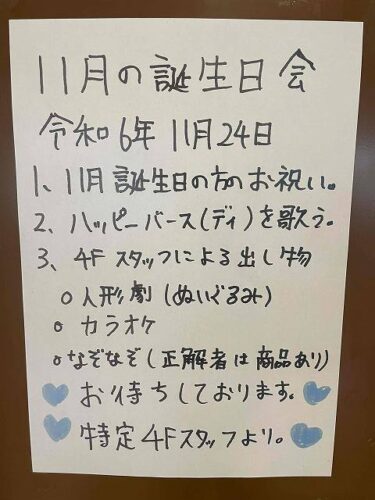 11月の誕生日会
令和6年11月24日
1、11月誕生日の方のお祝い。
2、ハッピーバース(ディ)を歌う。
3、4Fスタッフによる出し物
○人形劇(ぬいぐるみ)
○カラオケ
○なぞなぞ(正解者は商品あり)
お待ちしております。
特定4Fスタッフより。